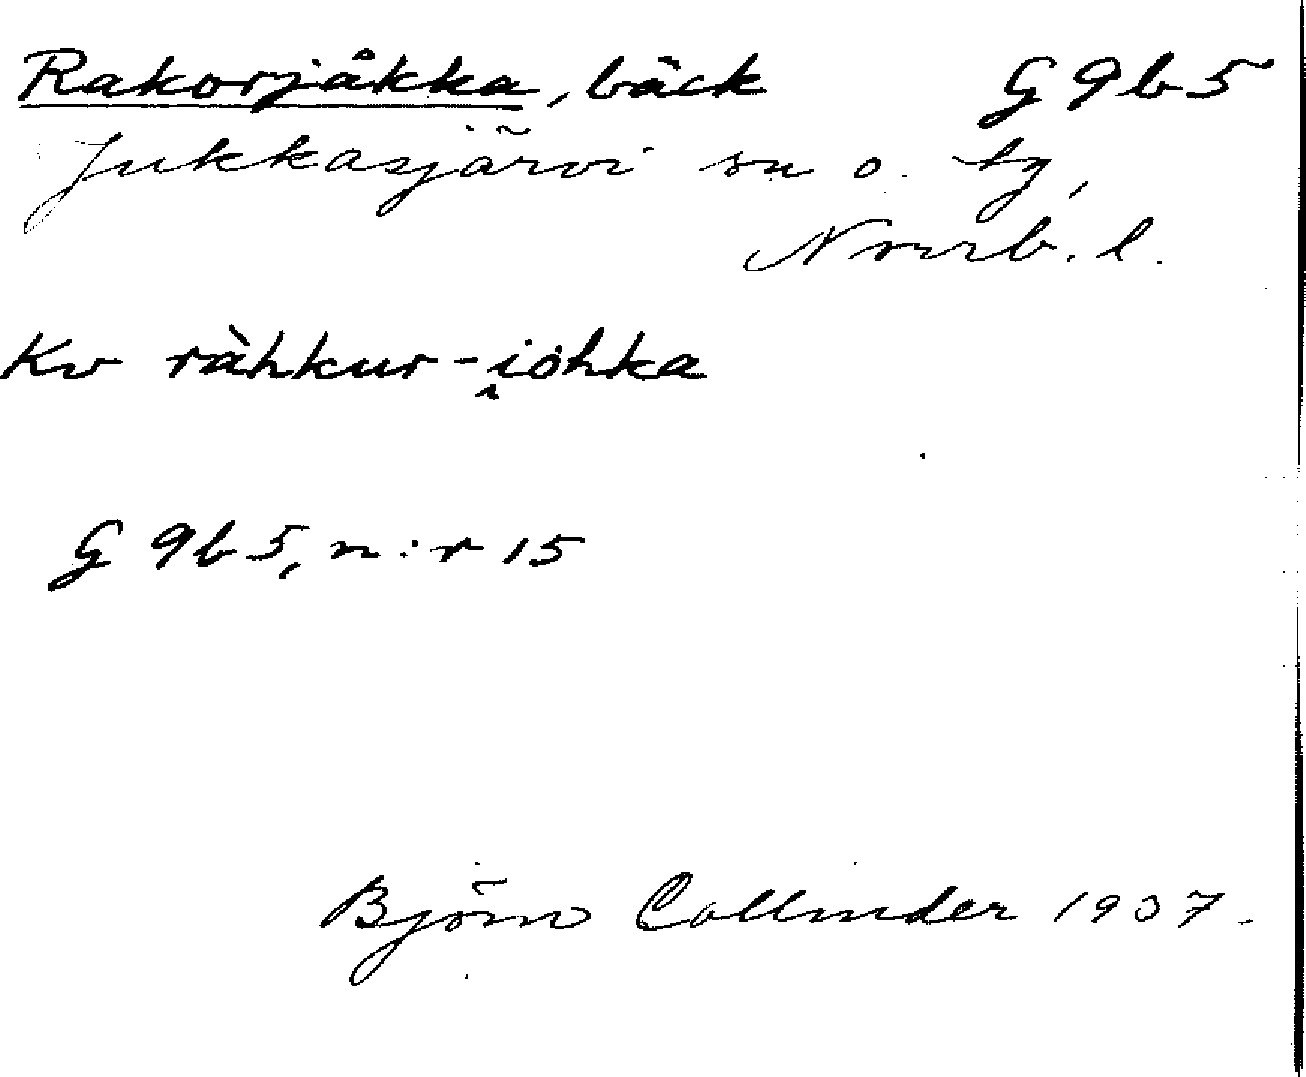 Rakorjåkka, bäck G9b5
Jukkasjärvi sn o. tg,
Norrb. l.
Kv ràhkur-i̯ohka
G 9b5, n:r 15
Björn Collinder 1937.